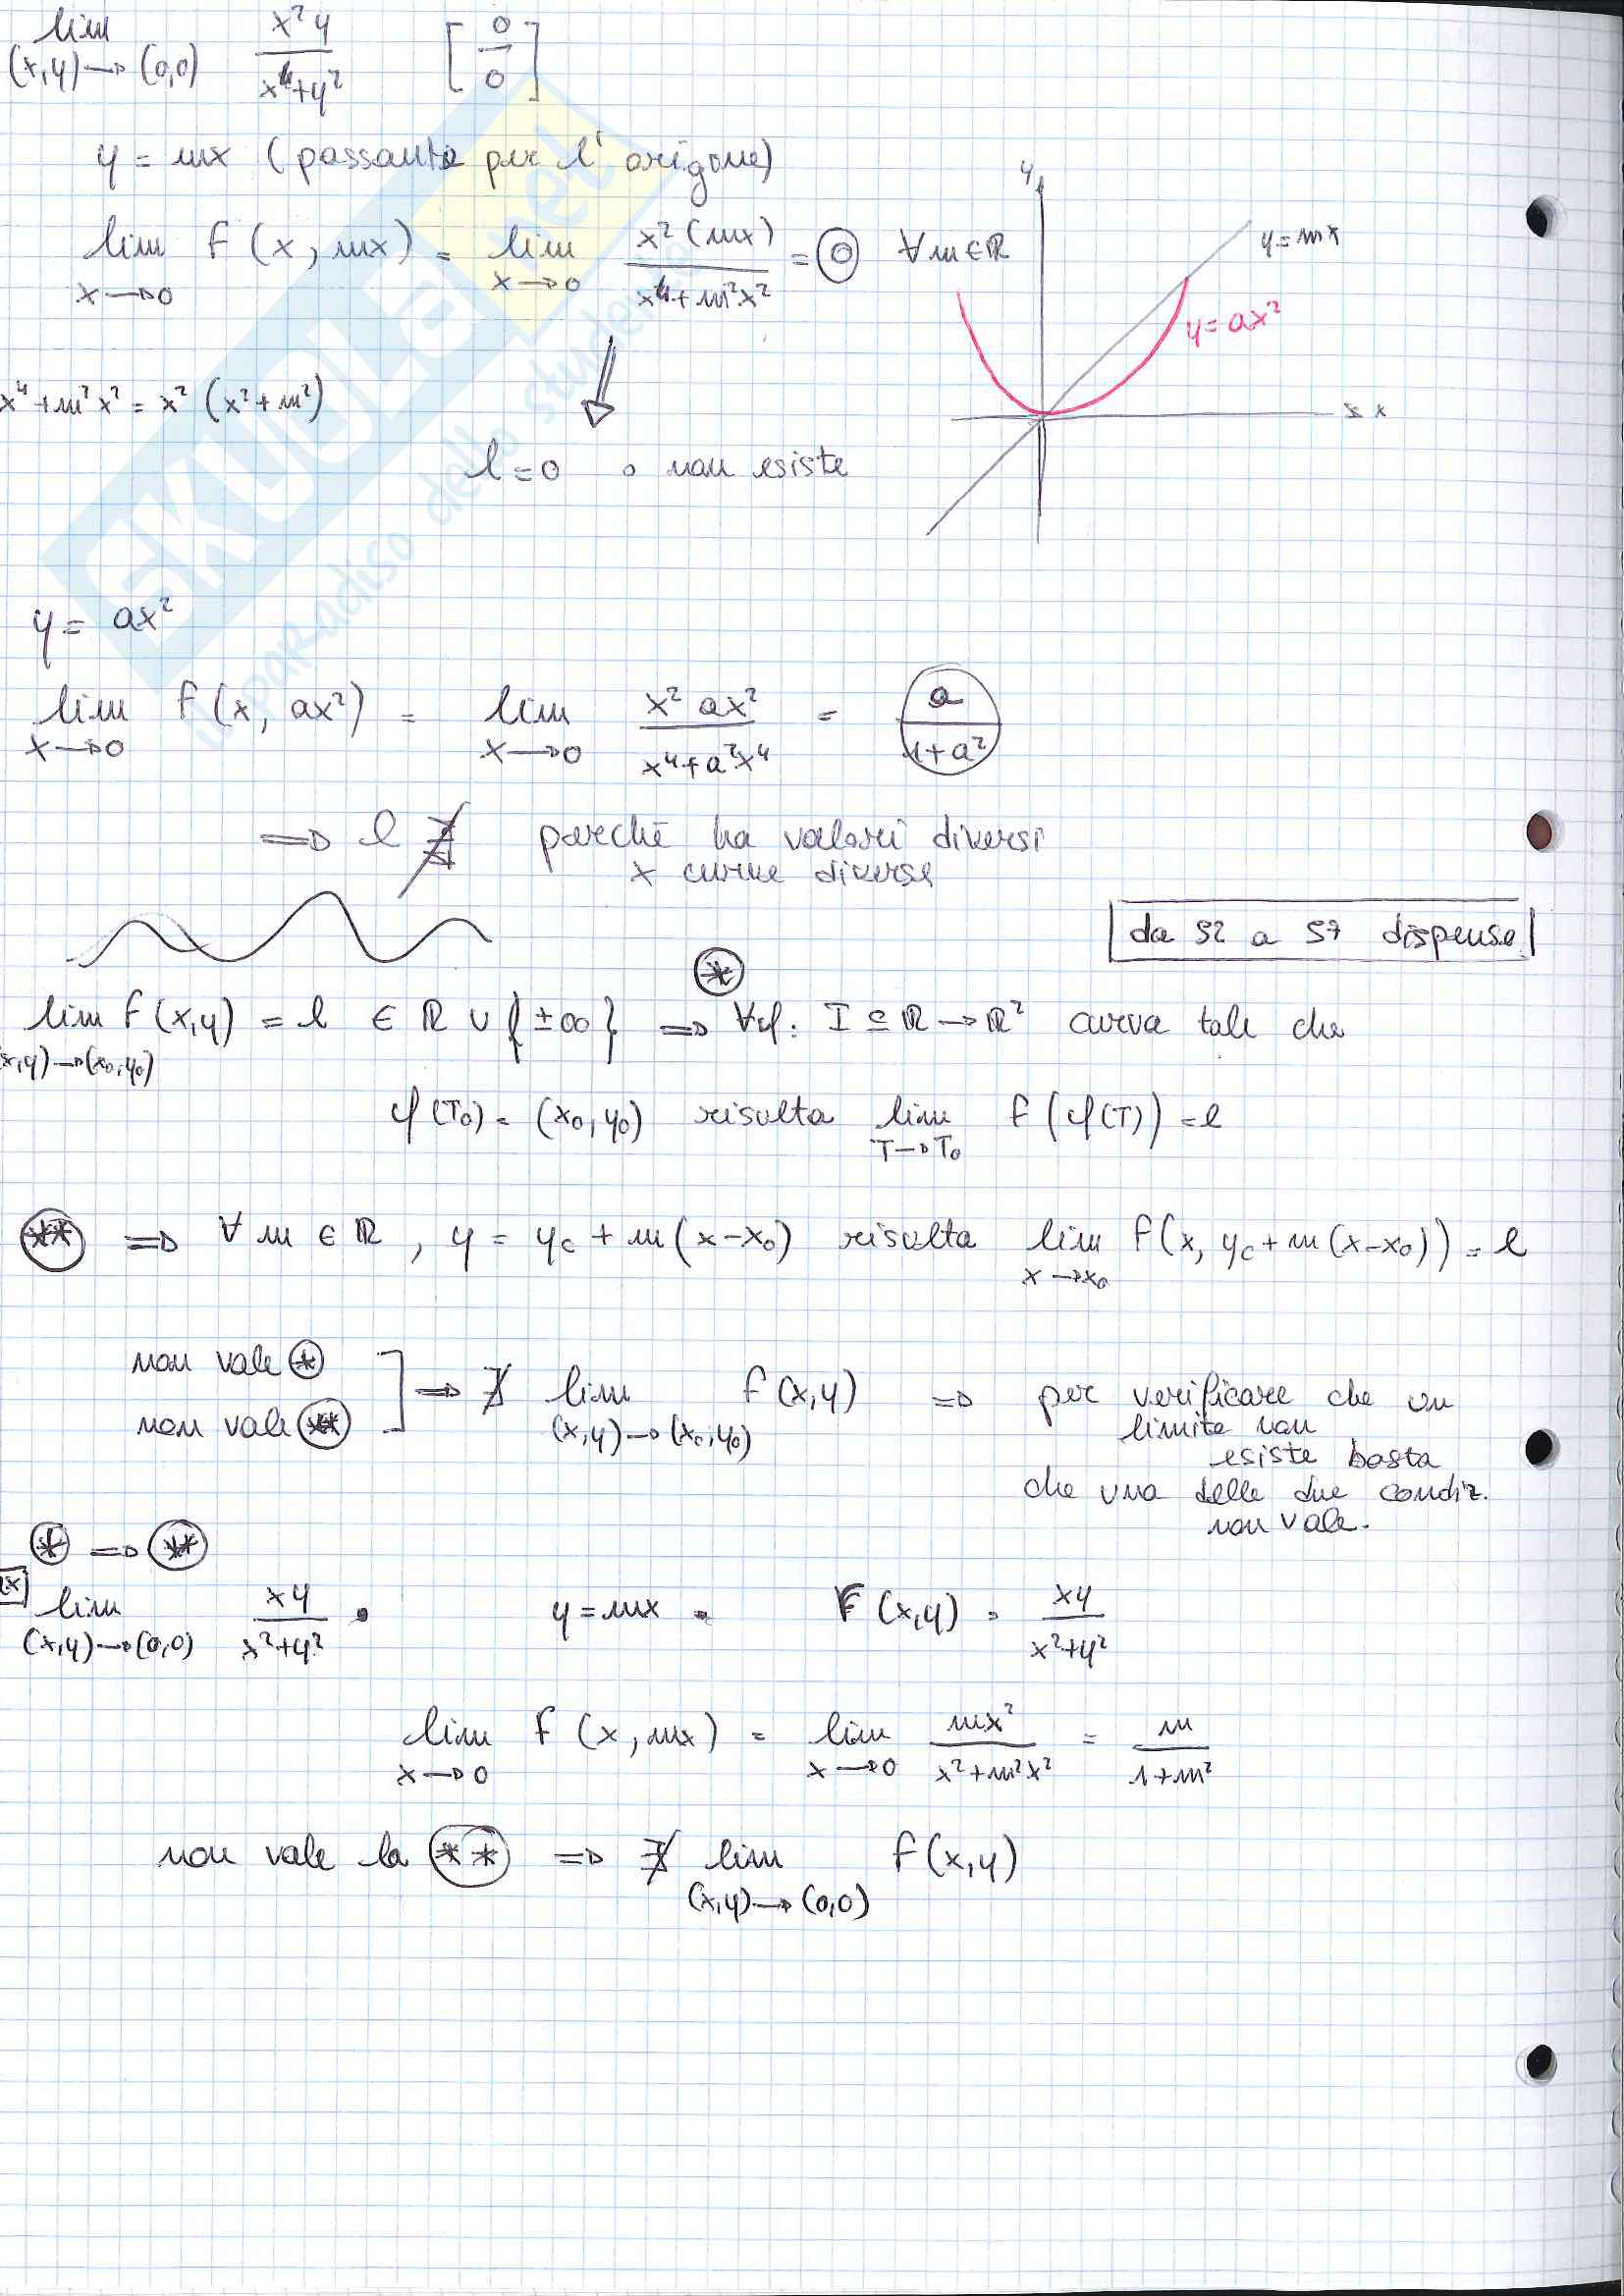 lim x²y / x⁴+y² [0/0]
(x,y)→(0,0)
y = mx (passante per l'origine)
lim f(x, mx) = lim x²(mx) / x⁴+m²x² = 0 ∀m∈ℝ
x→0 x→0
x⁴+m²x² = x²(x²+m²)
l=0 o non esiste
y
y=mx
y=ax²
x
y = ax²
lim f(x, ax²) = lim x² ax² / x⁴+a²x⁴ = a / 1+a²
x→0 x→0
⇒ l ∄ perchè ha valori diversi
x curve diverse
da 52 a 57 dispense
(*)
lim f(x,y) = l ∈ ℝ ∪ {±∞} ⇒ ∀φ: I ⊆ ℝ → ℝ² curva tale che
(x,y)→(x₀,y₀)
φ(T₀) = (x₀,y₀) risulta lim f(φ(T)) = l
T→T₀
(**) ⇒ ∀ m ∈ ℝ, y = y₀ + m(x-x₀) risulta lim f(x, y₀+m(x-x₀)) = l
x→x₀
non vale (*)
non vale (**)
] ⇒ ∄ lim f(x,y) ⇒ per verificare che un
(x,y)→(x₀,y₀)
limite non
esiste basta
che una delle due condiz.
non vale.
(*) ⇒ (**)
ex
lim xy / x²+y² y=mx f(x,y) = xy / x²+y²
(x,y)→(0,0)
lim f(x, mx) = lim mx² / x²+m²x² = m / 1+m²
x→0 x→0
non vale la (**) ⇒ ∄ lim f(x,y)
(x,y)→(0,0)